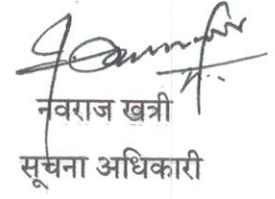 नवराज खत्री
सूचना अधिकारी